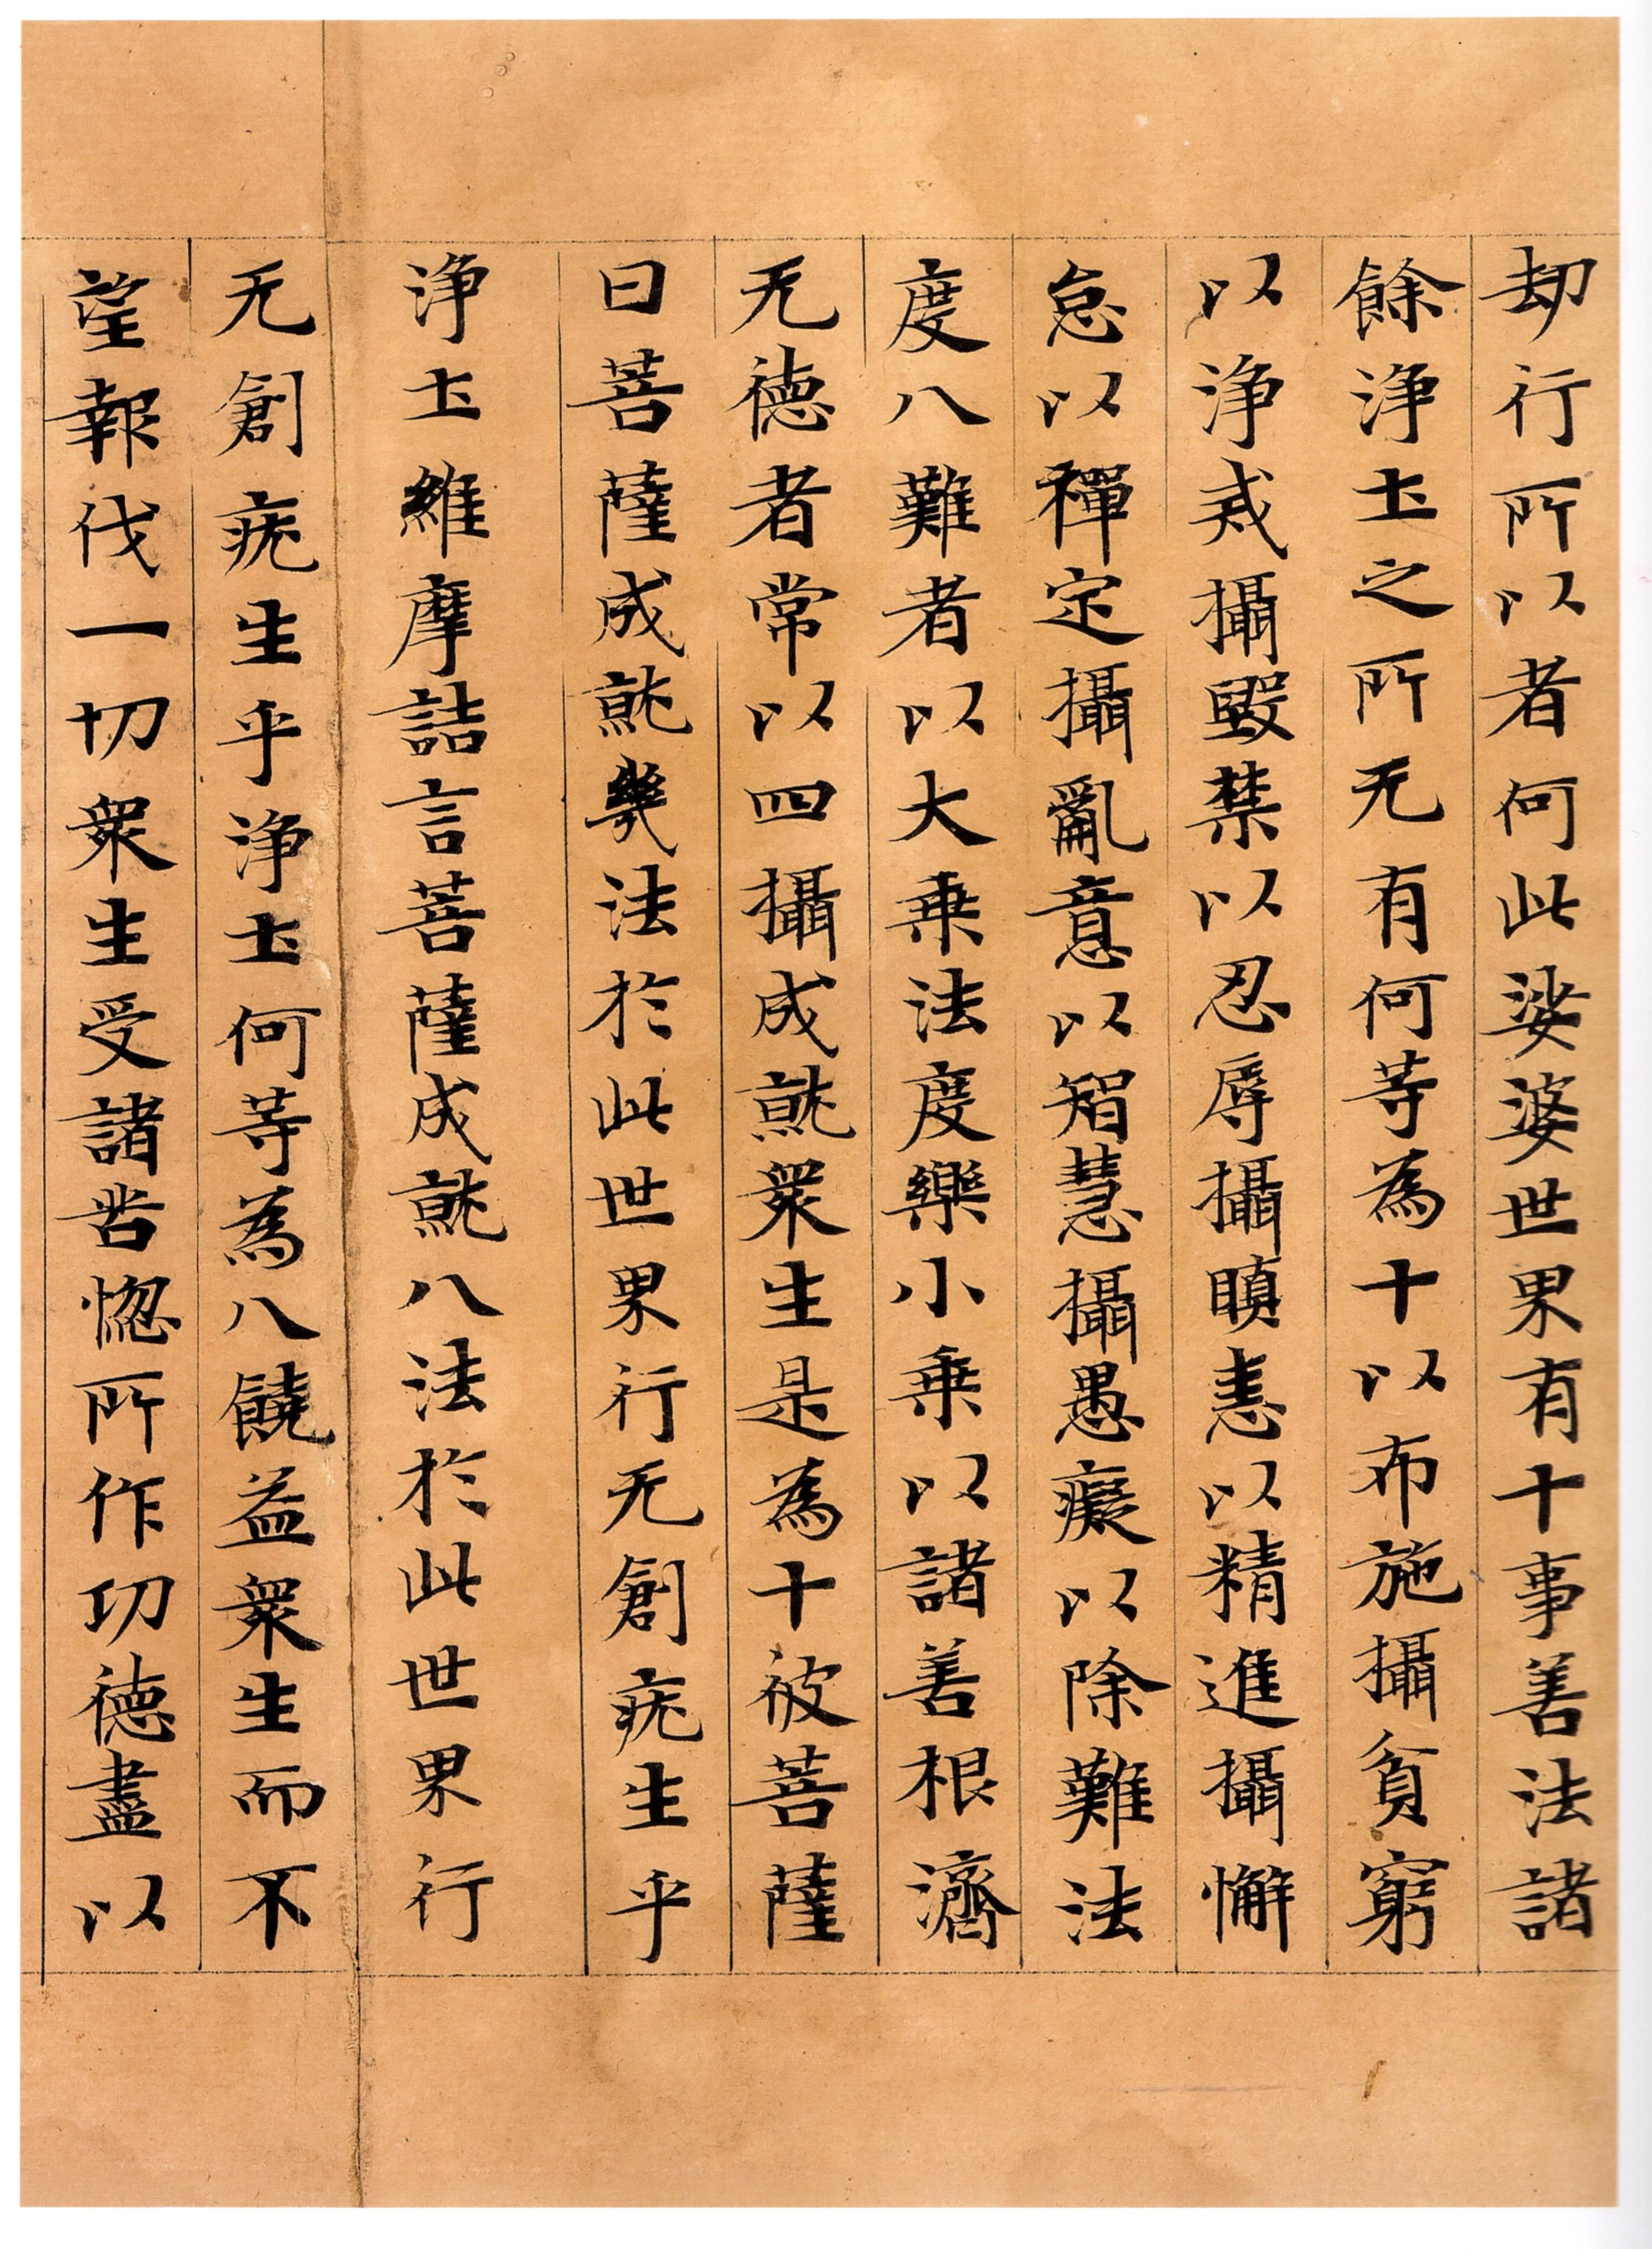 劫行所以者何此娑婆世界有十事善法諸
餘淨土之所无有何等為十以布施攝貧窮
以淨戒攝毀禁以忍辱攝瞋恚以精進攝懈
怠以禪定攝亂意以智慧攝愚癡以除難法
度八難者以大乗法度樂小乗以諸善根濟
无德者常以四攝成就衆生是為十彼菩薩
曰菩薩成就幾法於此世界行无創疣生乎
淨土維摩詰言菩薩成就八法於此世界行
无創疣生乎淨土何等為八饒益衆生而不
望報代一切衆生受諸苦惱所作功德盡以